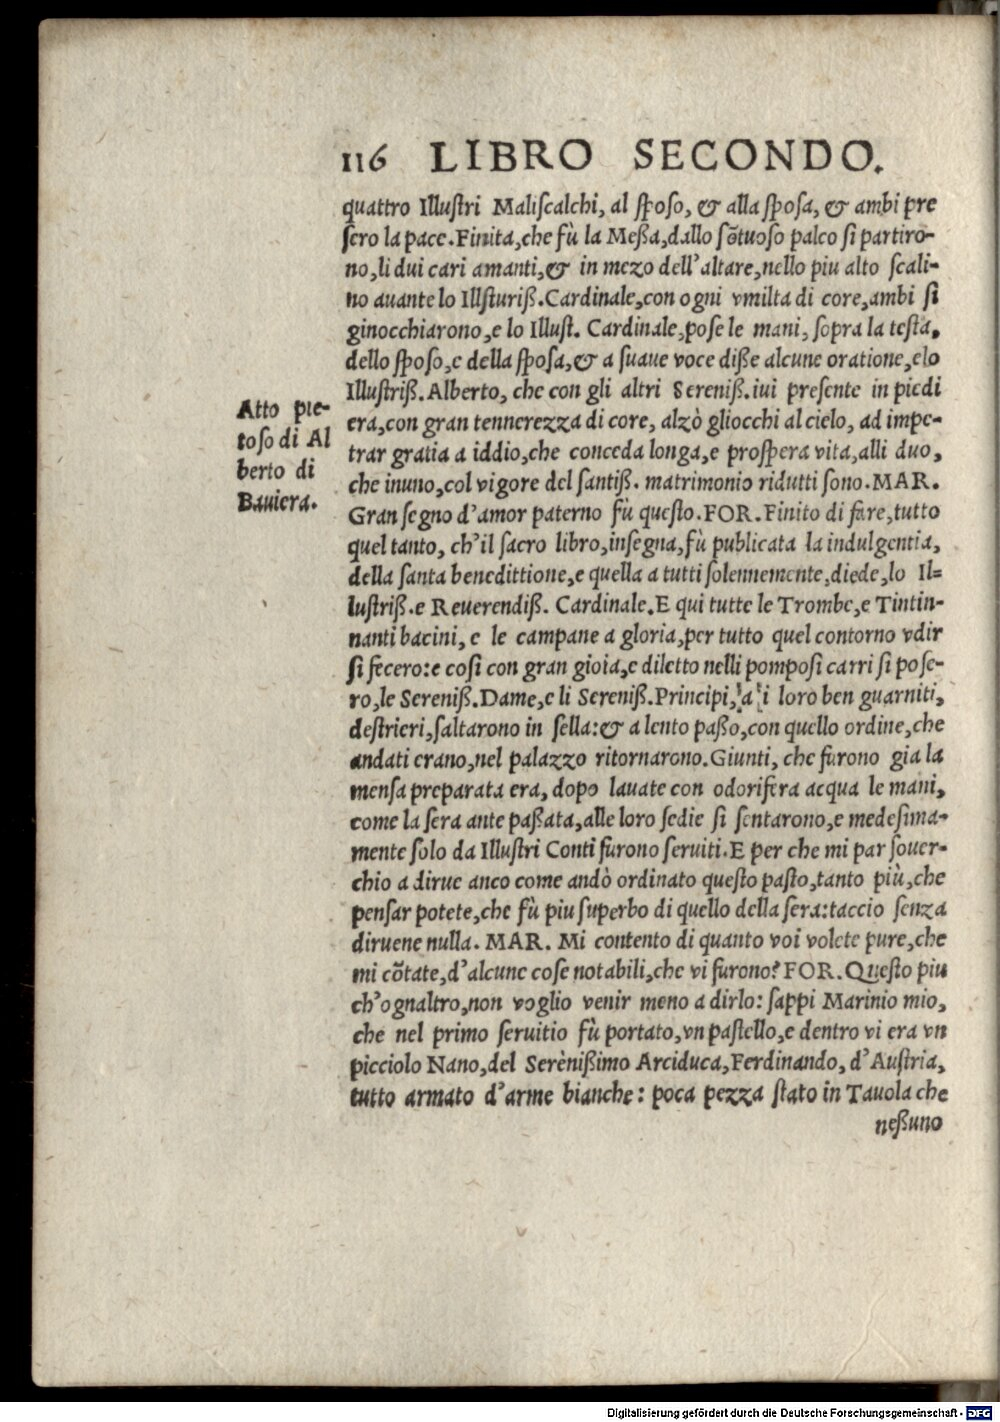 116 LIBRO SECONDO.
quattro Illuſtri Maliſcalchi, al ſpoſo, & alla ſpoſa, & ambi pre
ſero la pace. Finita, che fù la Meßa, dallo sõtuoso palco ſi partiro-
no, li dui cari amanti, & in mezo dell'altare, nello piu alto ſcali-
no auante lo Illſturiß. Cardinale, con ogni vmilta di core, ambi ſi
ginocchiarono, e lo Illuſt. Cardinale, poſe le mani, ſopra la teſta,
dello ſpoſo, e della ſpoſa, & a ſuaue voce diße alcune oratione, e lo
Illuſtriß. Alberto, che con gli altri Sereniß. iui preſente in piedi
era, con gran tennerezza di core, alzò gliocchi al cielo, ad impe-
trar gratia a iddio, che conceda longa, e proſpera vita, alli duo,
che inuno, col vigore del santiß. matrimonio ridutti ſono. MAR.
Gran ſegno d'amor paterno fù queſto. FOR. Finito di fare, tutto
quel tanto, ch'il ſacro libro, inſegna, fù publicata la indulgentia,
della ſanta benedittione, e quella a tutti ſolennemente, diede, lo Il=
luſtriß. e Reuerendiß. Cardinale. E qui tutte le Trombe, e Tintin-
nanti bacini, e le campane a gloria, per tutto quel contorno vdir
ſi fecero: e coſi con gran gioia, e diletto nelli pompoſi carri ſi poſe-
ro, le Sereniß. Dame, e li Sereniß. Principi, loro ben guarniti,
deſtrieri, ſaltarono in ſella: & a lento paßo, con quello ordine, che
andati erano, nel palazzo ritornarono. Giunti, che furono gia la
menſa preparata era, dopo lauate con odorifera acqua le mani,
come la ſera ante paßata, alle loro ſedie ſi ſentarono, e medeſima-
mente ſolo da Illuſtri Conti furono ſeruiti. E per che mi par ſouer-
chio a dirue anco come andò ordinato queſto paſto, tanto più, che
penſar potete, che fù piu ſuperbo di quello della ſera: taccio ſenza
diruene nulla. MAR. Mi contento di quanto voi volete pure, che
mi cõtate, d'alcune coſe notabili, che vi furono? FOR. Queſto piu
ch'ognaltro, non voglio venir meno a dirlo: ſappi Marinio mio,
che nel primo ſeruitio fù portato, vn paſtello, e dentro vi era vn
picciolo Nano, del Serènißimo Arciduca, Ferdinando, d'Auſtria,
tutto armato d'arme bianche: poca pezza ſtato in Tauola che
neßuno
Atto pie-
toſo di Al
berto di
Bauiera.
Digitalisierung gefördert durch die Deutsche Forschungsgemeinschaft - DFG